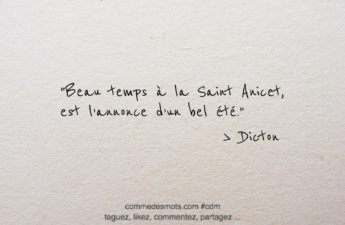 "Beau temps à la Saint Anicet,
est l'annonce d'un bel été."
> Dicton
commedesmots.com #cdm
taguez, likez, commentez, partagez ...